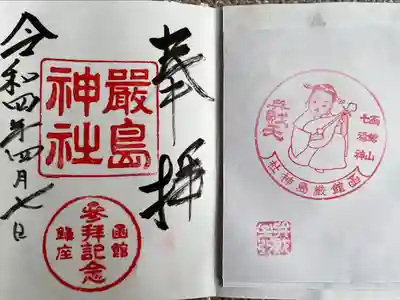 奉拝
嚴島
神社
参拝記念
函館
鎮座
令和四年四月七日
函館山
七福神
弁財天
函館嚴島神社